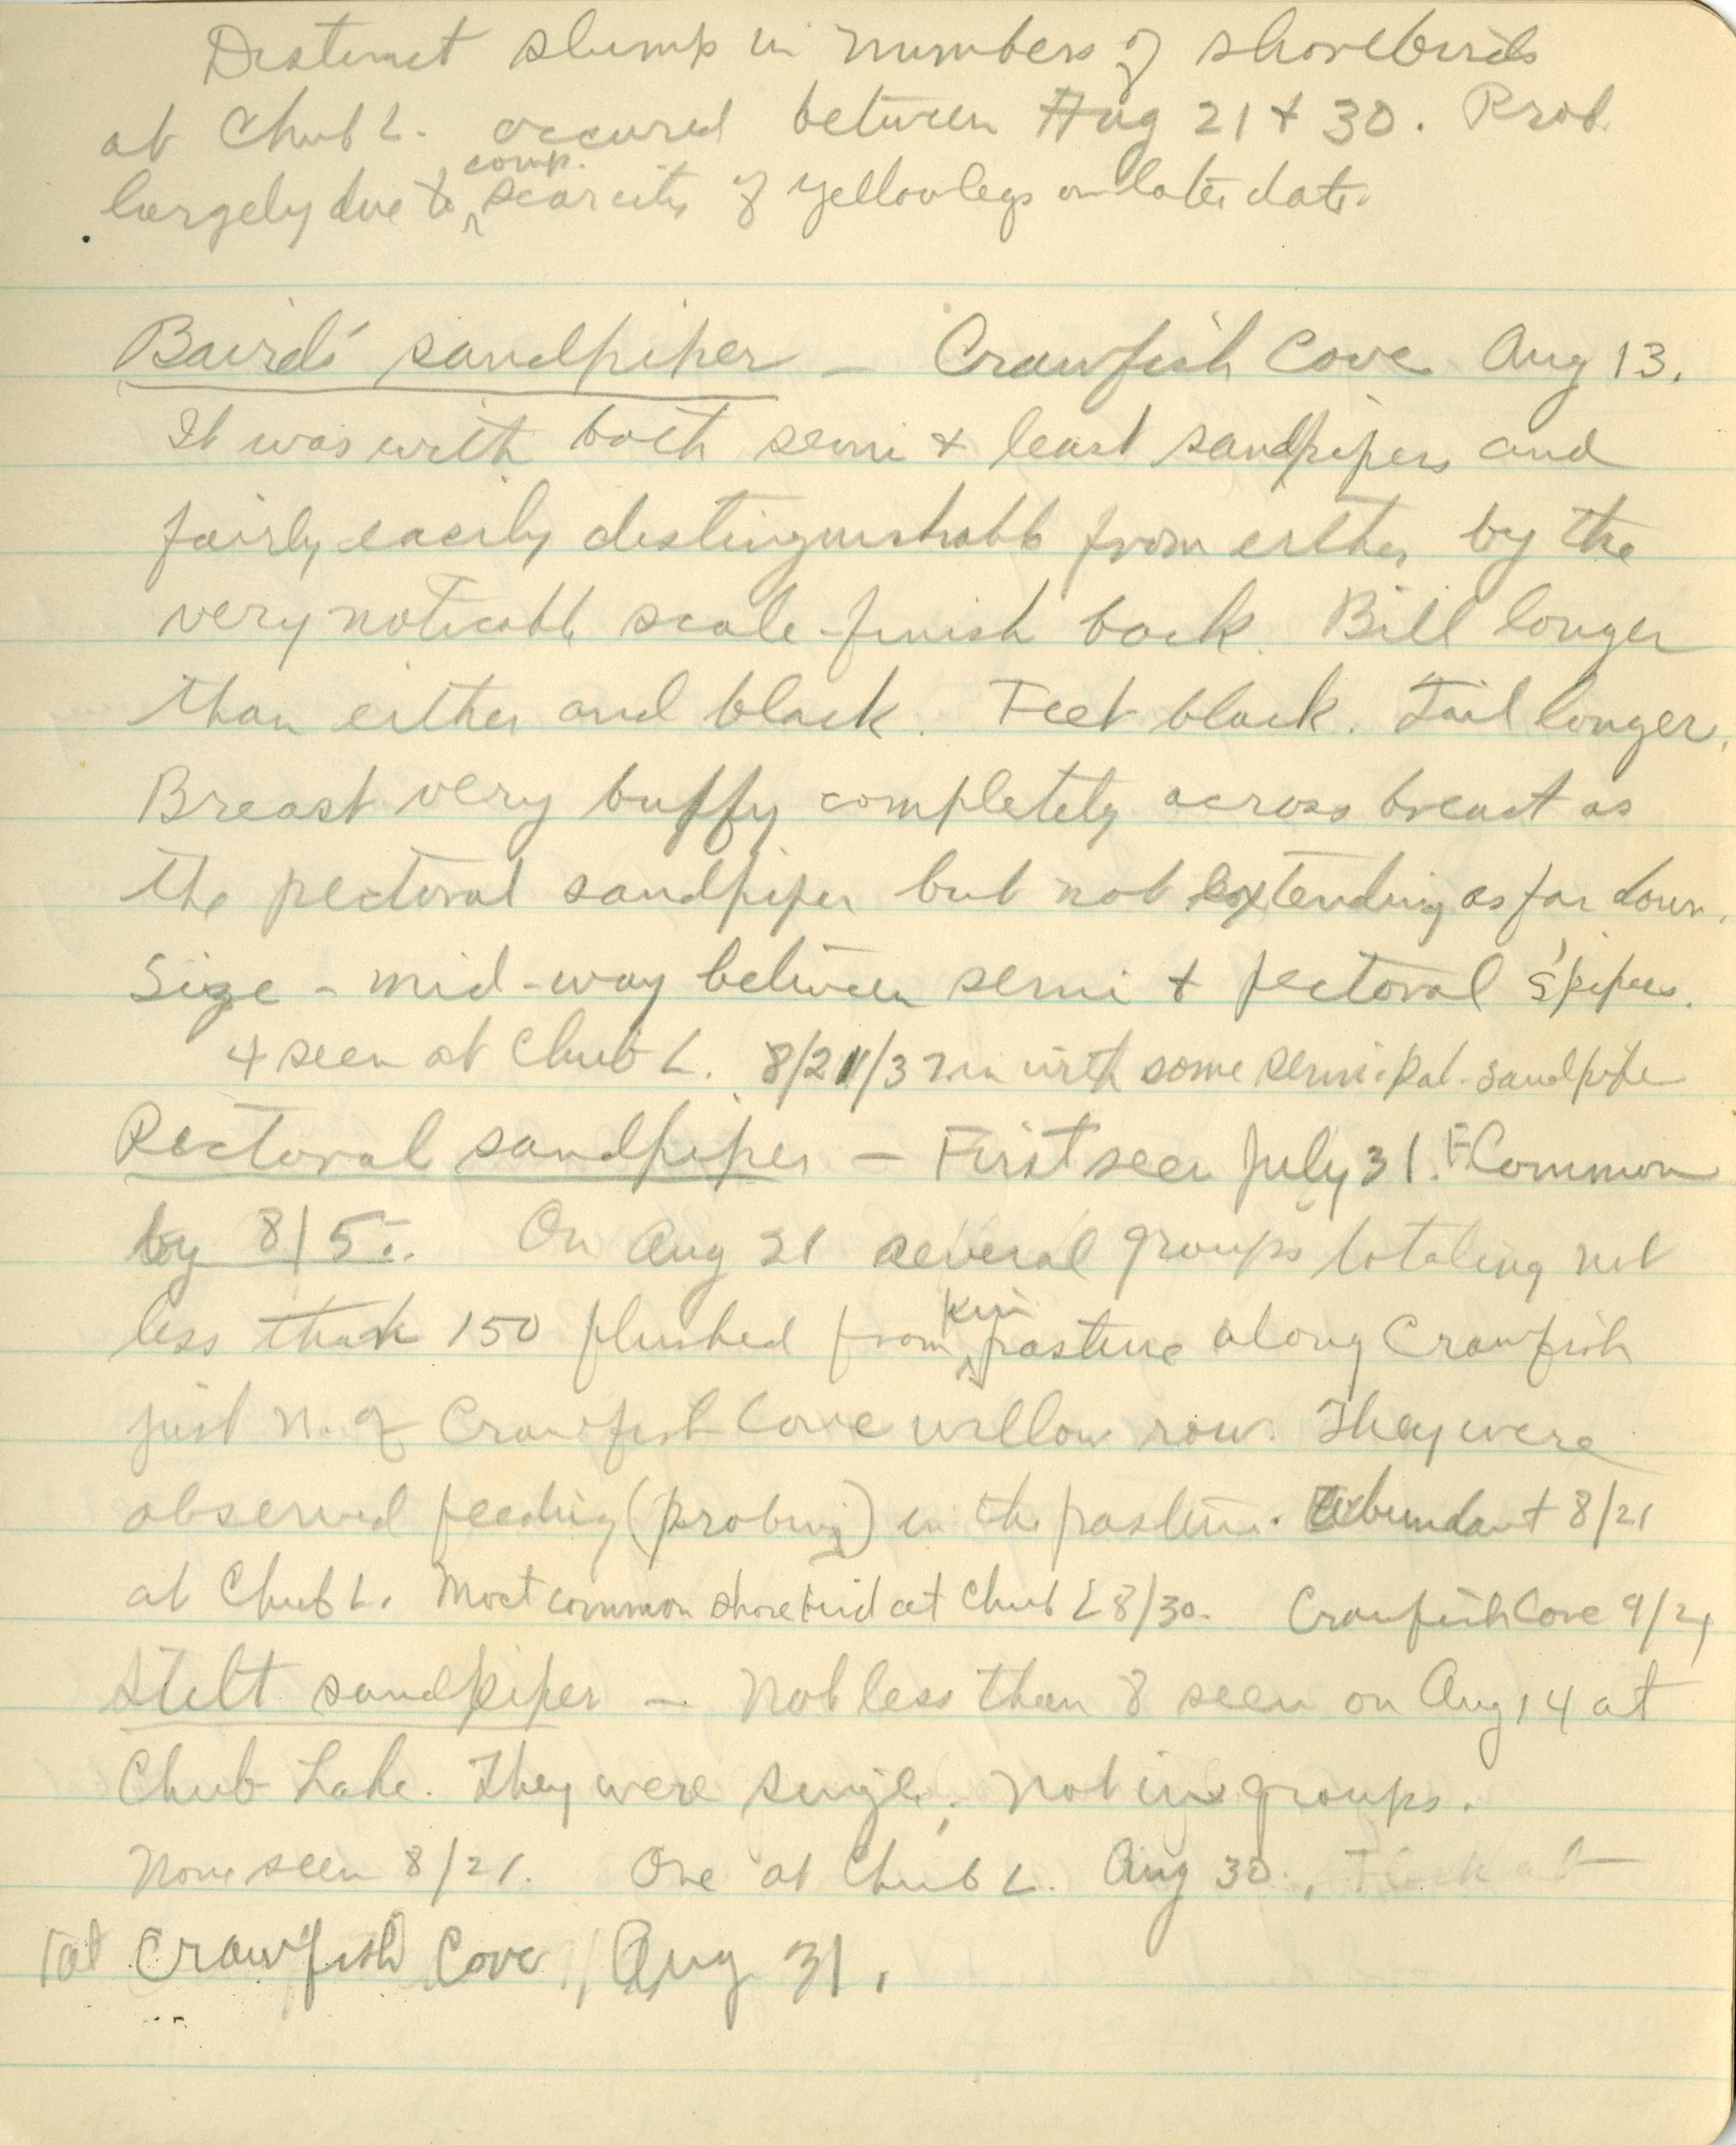 Distinct slump in numbers of shorebirds
at Chub L. occured between Aug 21 + 30. Prob.
largely due to comp. scarcity of yellowlegs on later date.
Baird's sandpiper - Crawfish Cove Aug 13.
It was with both semi + least sandpipers and
fairly easily distinguishable from either by the
very noticable scale-finish back. Bill longer
than either and black. Feet black. Tail longer.
Breast very buffy completely across breast as
the pectoral sandpiper but not extending as far down.
Size - mid-way between semi + pectoral s'pipers.
4 seen at Chub L. 8/21/37 in with some semi-pal-sandpipe
Pectoral sandpiper - First seen July 31. Common
by 8/5. On Aug 21 several groups totaling not
less than 150 flushed from pasture along Crawfish
just N. of Crawfish Cove willow row. They were
observed feeding (probing) in the pasture. Abundant 8/21
at Chub L. Most common shorebird at Chub L 8/30. Crawfish Cove 9/2,
Stilt sandpiper - Not less than 8 seen on Aug 14 at
Chub Lake. They were single, not in groups.
None seen 8/21. One at Chub L. Aug 30.,
1 at Crawfish Cove, Aug 31.